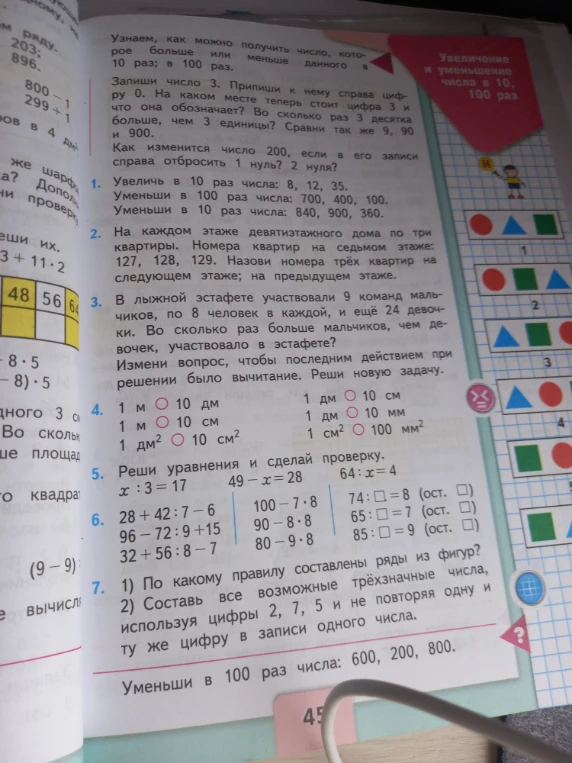 ряду.
203;
896.
800 − 1
299 + 1
ров в 4 дм
же шарф
ка? Допол
ни провер
еши их.
3 + 11 · 2
48 56 64
8 · 5
− 8) · 5
дного 3 с
Во скольк
ше площад
го квадра
(9 − 9)
е вычисл
Узнаем, как можно получить число, кото-
рое больше или меньше данного в
10 раз; в 100 раз.
Увеличение
и уменьшение
числа в 10,
100 раз
Запиши число 3. Припиши к нему справа циф-
ру 0. На каком месте теперь стоит цифра 3 и
что она обозначает? Во сколько раз 3 десятка
больше, чем 3 единицы? Сравни так же 9, 90
и 900.
Как изменится число 200, если в его записи
справа отбросить 1 нуль? 2 нуля?
1. Увеличь в 10 раз числа: 8, 12, 35.
Уменьши в 100 раз числа: 700, 400, 100.
Уменьши в 10 раз числа: 840, 900, 360.
2. На каждом этаже девятиэтажного дома по три
квартиры. Номера квартир на седьмом этаже:
127, 128, 129. Назови номера трёх квартир на
следующем этаже; на предыдущем этаже.
3. В лыжной эстафете участвовали 9 команд маль-
чиков, по 8 человек в каждой, и ещё 24 девоч-
ки. Во сколько раз больше мальчиков, чем де-
вочек, участвовало в эстафете?
Измени вопрос, чтобы последним действием при
решении было вычитание. Реши новую задачу.
4. 1 м ○ 10 дм 1 дм ○ 10 см
1 м ○ 10 см 1 дм ○ 10 мм
1 дм² ○ 10 см² 1 см² ○ 100 мм²
5. Реши уравнения и сделай проверку.
x : 3 = 17 49 − x = 28 64 : x = 4
6. 28 + 42 : 7 − 6 100 − 7 · 8 74 : □ = 8 (ост. □)
96 − 72 : 9 + 15 90 − 8 · 8 65 : □ = 7 (ост. □)
32 + 56 : 8 − 7 80 − 9 · 8 85 : □ = 9 (ост. □)
7. 1) По какому правилу составлены ряды из фигур?
2) Составь все возможные трёхзначные числа,
используя цифры 2, 7, 5 и не повторяя одну и
ту же цифру в записи одного числа.
?
Уменьши в 100 раз числа: 600, 200, 800.
45
1
2
3
4